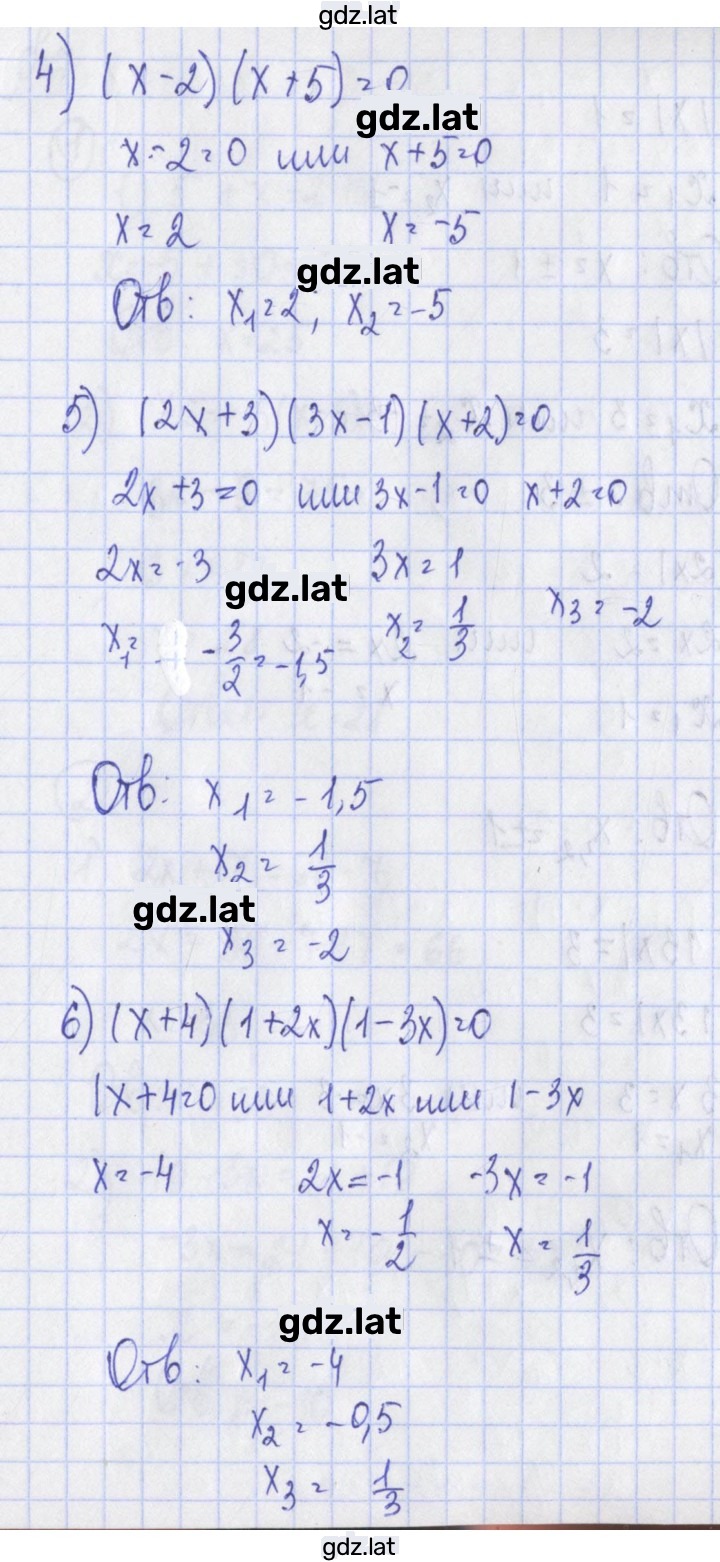 gdz.lat
4) (x-2)(x+5)=0
gdz.lat
x-2=0 или x+5=0
x=2 x=-5
gdz.lat
Отв: x₁=2; x₂=-5
5) (2x+3)(3x-1)(x+2)=0
2x+3=0 или 3x-1=0 x+2=0
2x=-3 3x=1
gdz.lat
x₁= -3/2=-1,5 x₂=1/3 x₃=-2
Отв: x₁=-1,5
x₂=1/3
gdz.lat
x₃=-2
6) (x+4)(1+2x)(1-3x)=0
x+4=0 или 1+2x или 1-3x
x=-4 2x=-1 -3x=-1
x=-1/2 x=1/3
gdz.lat
Отв: x₁=-4
x₂=-0,5
x₃=1/3
gdz.lat